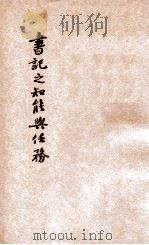 書記之知能與任務
www.mtoou.info